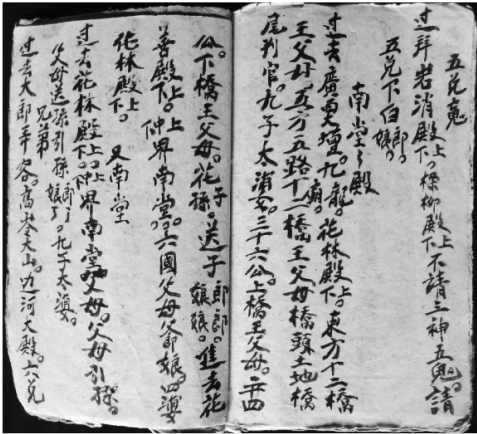 五兑鬼
过拜岩消殿上下。楺柳殿上下不請三神五鬼。請
五兑下白郎。娘。
南堂殿
过去廣東壇。九龍廟。花林殿上。東方十二橋
王父母。五方五路十二橋王父母橋頭土地橋
尾判官。九子太婆。三十六公上橋王父母。二十四
公。下橋王父母。花子孫。送子郎郎。娘娘。進去花
善殿上下。仲界南堂。六國父母父郎娘。四婆
花林殿上下。又南堂
过去花林殿上下。仲界南堂父母。父母引孫。
父母送孫引孫郎。娘。九子太婆。
兄弟
过去大郎 容。高 大山。边河大殿。六兑